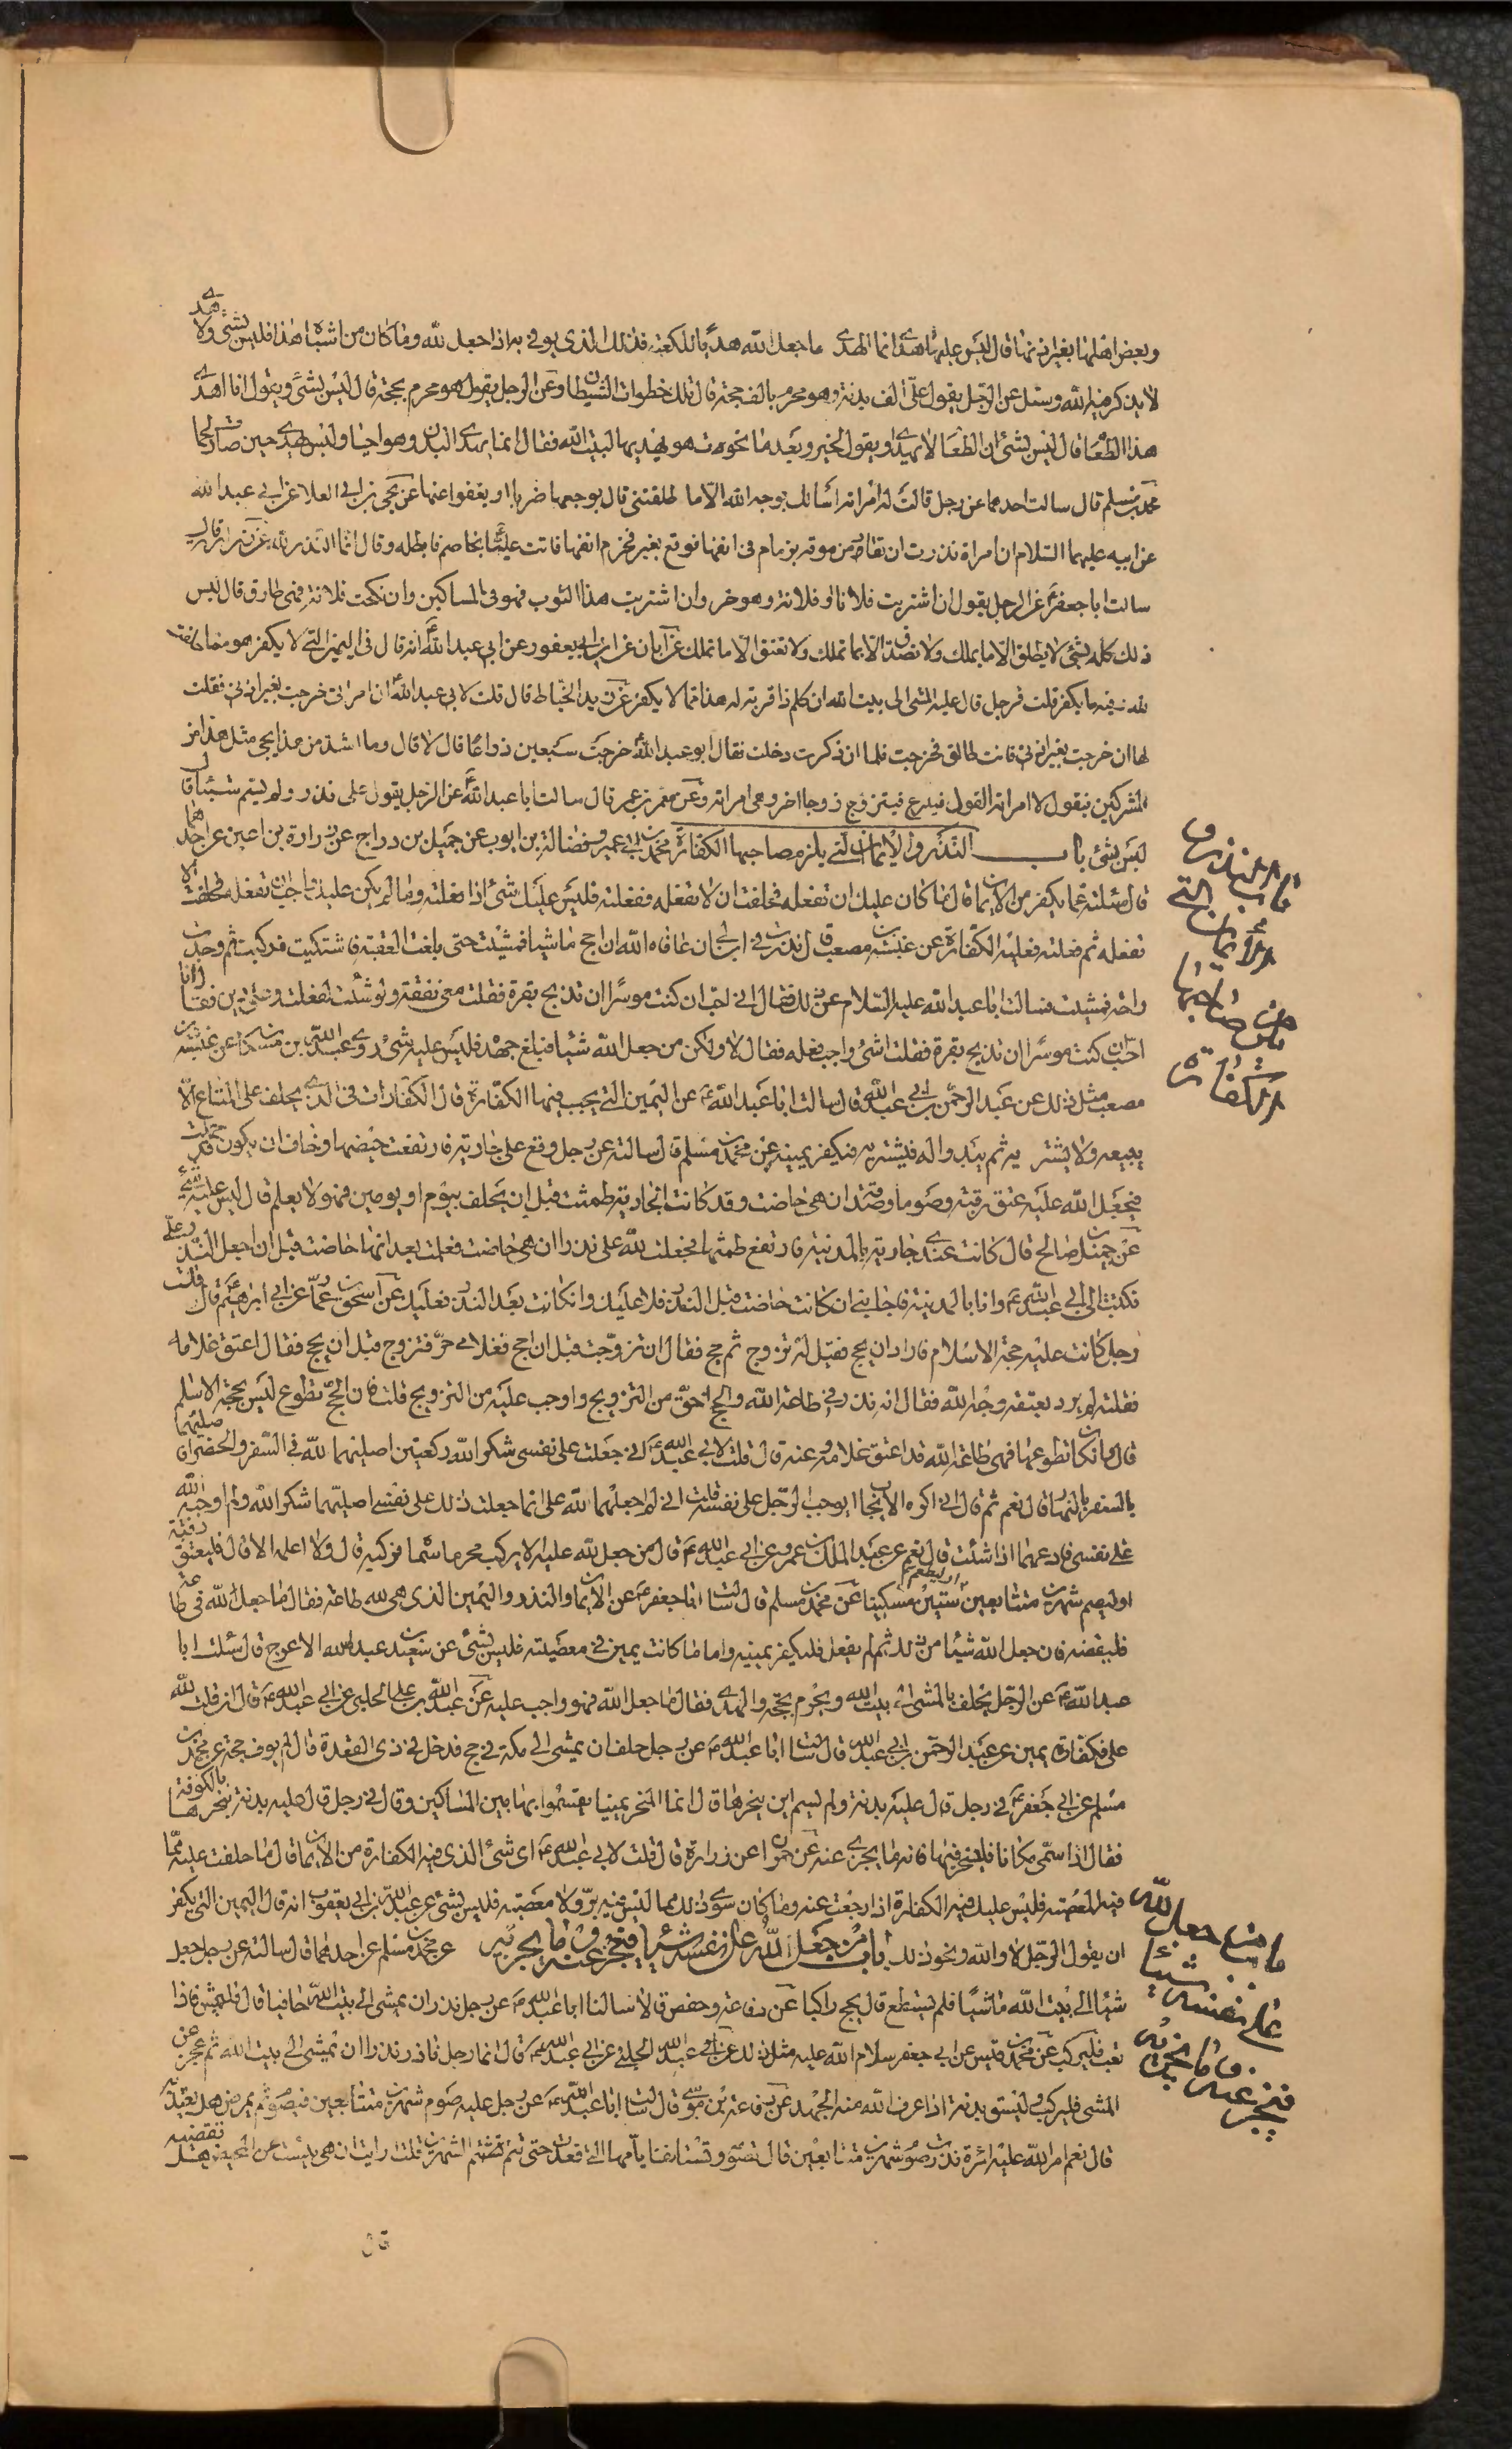 وبعض اهلها بغير اذنها قال ليس عليها هدى انما الهدى ما جعل لله هديا للكعبة فذلك الذى يوفى به اذا جعل لله وما كان من اشباه هذا فليس بشئ ولا هدى
لا يذكر فيه الله وسئل عن الرجل يقول على الف بدنة وهو محرم بالف حجة قال تلك خطوات الشيطان وعن الرجل يقول هو محرم بحجة قال ليس بشئ ويقول انا اهدى
هذا الطعام قال ليس بشئ ان الطعام لا يهدى او يقول لجزور بعد ما نحرت هو يهديها لبيت الله فقال انما يهدى البدن وهو احيا وليس يهدى حين صارت لحما
محمد بن مسلم قال سالت احدهما عن رجل قالت له امراته اسالك بوجه الله الا ما طلقتنى قال يوجعها ضربا او يعفوا عنها عن يحيى بن ابى العلا عن ابى عبد الله
عن ابيه عليهما السلام ان امراة نذرت ان تقاد مزموقة بزمام فى انفها فوقع بعير فخرم انفها فاتت عليا تخاصم فابطله وقال انما النذر لله
سالت ابا جعفر عن الرجل يقول ان اشتريت فلانا او فلانة فهو حر وان اشتريت هذا الثوب فهو فى المساكين وان نكحت فلانة فهى طالق قال ليس
ذلك كله بشئ لا يطلق الا ما يملك ولا تصدق الا بما تملك ولا تعتق الا ما تملك عن ابان عن ابن ابى يعفور عن ابى عبد الله انه قال فى اليمين التى لا يكفر هو مما حلفت
لله فيه ما يكفر قلت فرجل قال عليه المشى الى بيت الله ان كلم ذا قرابة له هذا مما لا يكفر عن زيد الخياط قال قلت لابى عبد الله ان امراتى خرجت بغير اذنى فقلت
لها ان خرجت بغير اذنى فانت طالق فخرجت فلما ان ذكرت دخلت فقال ابو عبد الله خرجت سبعين ذراعا قال لا قال وما اشد من هذا يجى مثل هذا من
المشركين فيقول لامراته القول فينتزع فيتزوج زوجا اخر وهى امراته وعن معمر بن عمر قال سالت ابا عبد الله عن الرجل يقول على نذر ولم يسم شيئا قال
ليس بشئ باب النذر والايمان التى يلزم صاحبها الكفارة محمد بن ابى عمير وفضالة بن ايوب عن جميل بن دراج عن زرارة بن اعين عن احدهما
قال سئلته عما يكفر من الايمان قال ما كان عليك ان تفعله فحلفت ان لا تفعله ففعلته فليس عليك شئ اذا فعلته وما لم يكن عليك واجبا ان تفعله فحلفت الا
تفعله ثم فعلته فعليك الكفارة عن عنبسة بن مصعب قال نذرت فى ابن لى ان عافاه الله ان احج ماشيا فمشيت حتى بلغت العقبة فاشتكيت فركبت ثم وجدت
راحة فمشيت فسالت ابا عبد الله عليه السلام عن ذلك فقال انى احب ان كنت موسرا ان تذبح بقرة فقلت معى نفقة ولو شئت لفعلت وعلى دين فقال انا
احب ان كنت موسرا ان تذبح بقرة فقلت اشئ واجب فعله فقال لا ولكن من جعل الله شيئا فبلغ جهده فليس عليه شئ وروى عبد الله بن مسكان عن عنبسة بن
مصعب مثل ذلك عن عبد الرحمن بن ابى عبد الله قال سالت ابا عبد الله عن اليمين التى يجب فيها الكفارة قال الكفارات فى الذى يحلف على المتاع الا
يبيعه ولا يشتريه ثم يبدوا له فيشتريه فيكفر يمينه عن محمد بن مسلم قال سالته عن رجل وقع على جارية فارتفعت حيضها وخاف ان يكون قد حملت
فجعل الله عليه عتق رقبة وصوما وصدقة ان هى حاضت وقد كانت الجارية طمثت قبل ان يحلف بيوم او يومين فهو لا يعلم قال ليس عليه شئ
عن جميل بن صالح قال كانت عندى جارية بالمدينة فارتفع طمثها فجعلت لله على نذرا ان هى حاضت فعلمت بعد انها حاضت قبل ان اجعل النذر على
فكتبت الى ابى عبد الله وانا بالمدينة فاجابنى ان كانت حاضت قبل النذر فلا عليك وان كانت بعد النذر فعليك عن اسحق بن عمار عن ابى ابرهيم قال قلت
رجل كانت عليه حجة الاسلام فاراد ان يحج فقيل له تزوج ثم حج فقال ان تزوجت قبل ان احج فغلامى حر فتزوج قبل ان يحج فقال اعتق غلامه
فقلت لم يرد بعتقه وجه الله فقال انه نذر فى طاعة الله والحج احق من التزويج واوجب عليه من التزويج قلت فان الحج تطوع ليس بحجة الاسلم
قال وان كان تطوعا فهى طاعة لله قد اعتق غلامه وعنه قال قلت لابى عبد الله انى جعلت على نفسى شكرا لله ركعتين اصليهما لله فى السفر والحضر افاصليهما
بالسفر بالنهار قال نعم ثم قال انى اكره الايجاب ان يوجب الرجل على نفسه قلت انى لم اجعلهما لله على انما جعلت ذلك على نفسى اصليهما شكرا لله ولم اوجبه لله
على نفسى فادعهما اذا شئت قال نعم عن عبد الملك بن عمرو عن ابى عبد الله قال من جعل لله عليه الا يركب محرما سماه فركبه قال ولا اعلمه الا قال فليعتق رقبة
او ليصم شهرين متتابعين او ليطعم ستين مسكينا عن محمد بن مسلم قال سالت ابا جعفر عن الايمان والنذر واليمين الذى هى لله طاعة فقال ما جعل لله فى طاعة
فليقضه فان جعل الله شيئا من ذلك ثم لم يفعل فليكفر يمينه واما ما كانت يمين فى معصية فليس بشئ عن سعيد بن عبد الله الاعرج قال سئلت ابا
عبد الله عن الرجل يحلف بالمشى الى بيت الله ويحرم بحجة والهدى فقال ما جعل الله فهو واجب عليه عن عبد الله بن على الحلبى عن ابى عبد الله قال ان قلت لله
على فكفارة يمين عن عبد الرحمن بن ابى عبد الله قال سالت ابا عبد الله عن رجل حلف ان يمشى الى مكة فى حج فدخل فى ذى القعدة قال لم يوف حجه عن محمد بن
مسلم عن ابى جعفر فى رجل قال عليه بدنة ولم يسم اين ينحرها قال انما المنحر بمنى يقتسموا بها بين المساكين وقال فى رجل قال عليه بدنة ينحرها بالكوفة
فقال اذا سمى مكانا فلينحر فيها فانه ما يجزى عنه عن حمران عن زرارة قال قلت لابى عبد الله اى شئ الذى فيه الكفارة من الايمان قال ما حلفت عليه مما
فيه المعصية فليس عليك فيه الكفارة اذا رجعت عنه وما كان سوى ذلك مما ليس فيه بر ولا معصية فليس بشئ عن عبد الله بن ابى يعفور انه قال اليمين التى يكفر
ان يقول الرجل لا والله ونحو ذلك باب من جعل لله على نفسه شيئا فيعجز عنه وما يجزيه عن محمد بن مسلم عن احدهما قال سالته عن رجل جعل
شيئا الى بيت الله ماشيا فلم يستطع قال يحج راكبا عن رفاعة وحفص قالا سالنا ابا عبد الله عن رجل نذر ان يمشى الى بيت الله حافيا قال فليمش فاذا
تعب فليركب عن محمد بن قيس عن ابى جعفر سلام الله عليه مثل ذلك عن عبد الله الحلبى عن ابى عبد الله قال ايما رجل نذر نذرا ان يمشى الى بيت الله ثم عجز عن
المشى فليركب وليسق بدنة اذا عرف الله منه الجهد عن رفاعة بن موسى قال سالت ابا عبد الله عن رجل عليه صوم شهرين متتابعين فيصوم ثم يمرض هل يعتد به
قال نعم امر الله عليه امرة نذرت صوم شهرين متتابعين قال تصوم وتستانف ايامها التى قعدت حتى تتم الشهرين قلت ارايت ان هى يئست عن الحيض هل تقضيه
قال
باب النذر و
الأيمان التى
يلزم صاحبها
الكفارة
باب من جعل لله
على نفسه شيئا
فيعجز عنه وما يجزيه